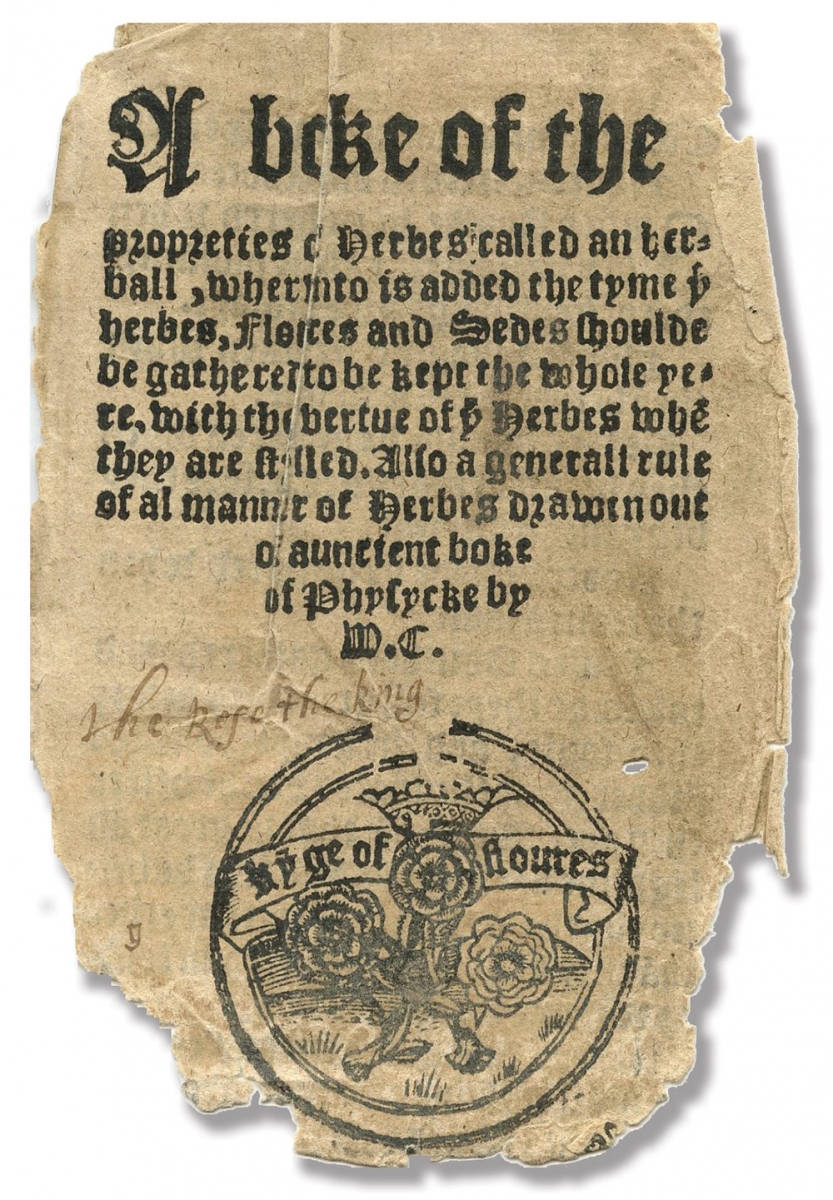 A boke of the
propreties of Herbes called an her-
ball, wherinto is added the tyme þͤ
herbes, Floures and Sedes shoulde
be gathered to be kept the whole ye-
re, with the vertue of þͤ Herbes whē
they are stilled. Also a generall rule
of al manner of Herbes drawen out
of auncient boke
of Physycke by
W.C.
the Rose the king
kȳge of floures
y